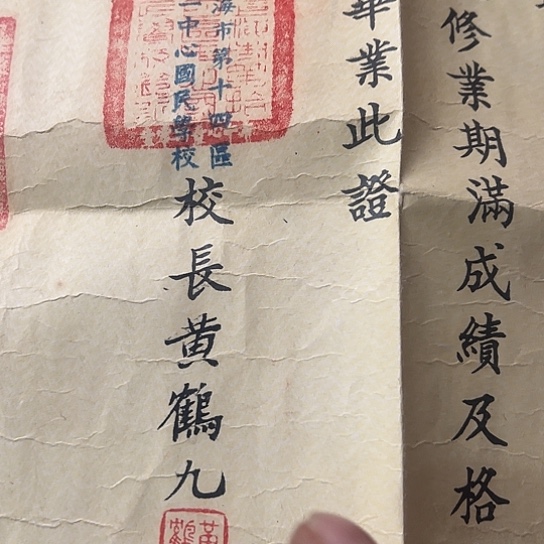 修業期滿成績及格
畢業此證
海市第十四區
中心國民學校
校長黄鶴九